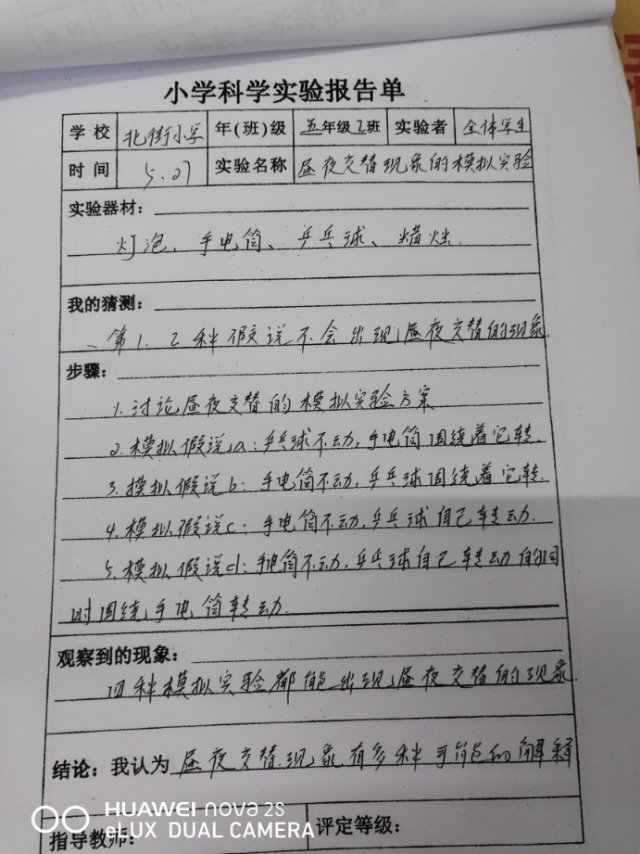 小学科学实验报告单
学校 北街小学 年(班)级 五年级2班 实验者 全体学生
时间 5.27 实验名称 昼夜交替现象的模拟实验
实验器材：
灯泡、手电筒、乒乓球、蜡烛.
我的猜测：
、第1、2种假说不会出现昼夜交替的现象
步骤：
1.讨论昼夜交替的模拟实验方案
2.模拟假说a：乒乓球不动,手电筒围绕着它转.
3.模拟假说b：手电筒不动,乒乓球围绕着它转.
4.模拟假说c：手电筒不动,乒乓球自己转动.
5.模拟假说d：手电筒不动,乒乓球自己转动的同
时围绕手电筒转动.
观察到的现象：
四种模拟实验都能出现昼夜交替的现象
结论：我认为 昼夜交替现象有多种可能的解释
指导教师： 评定等级：
HUAWEI nova 2S
eLUX DUAL CAMERA